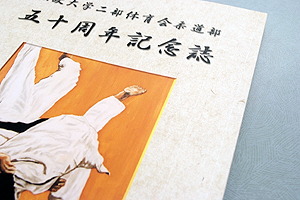 大学二部体育会柔道部
五十周年記念誌